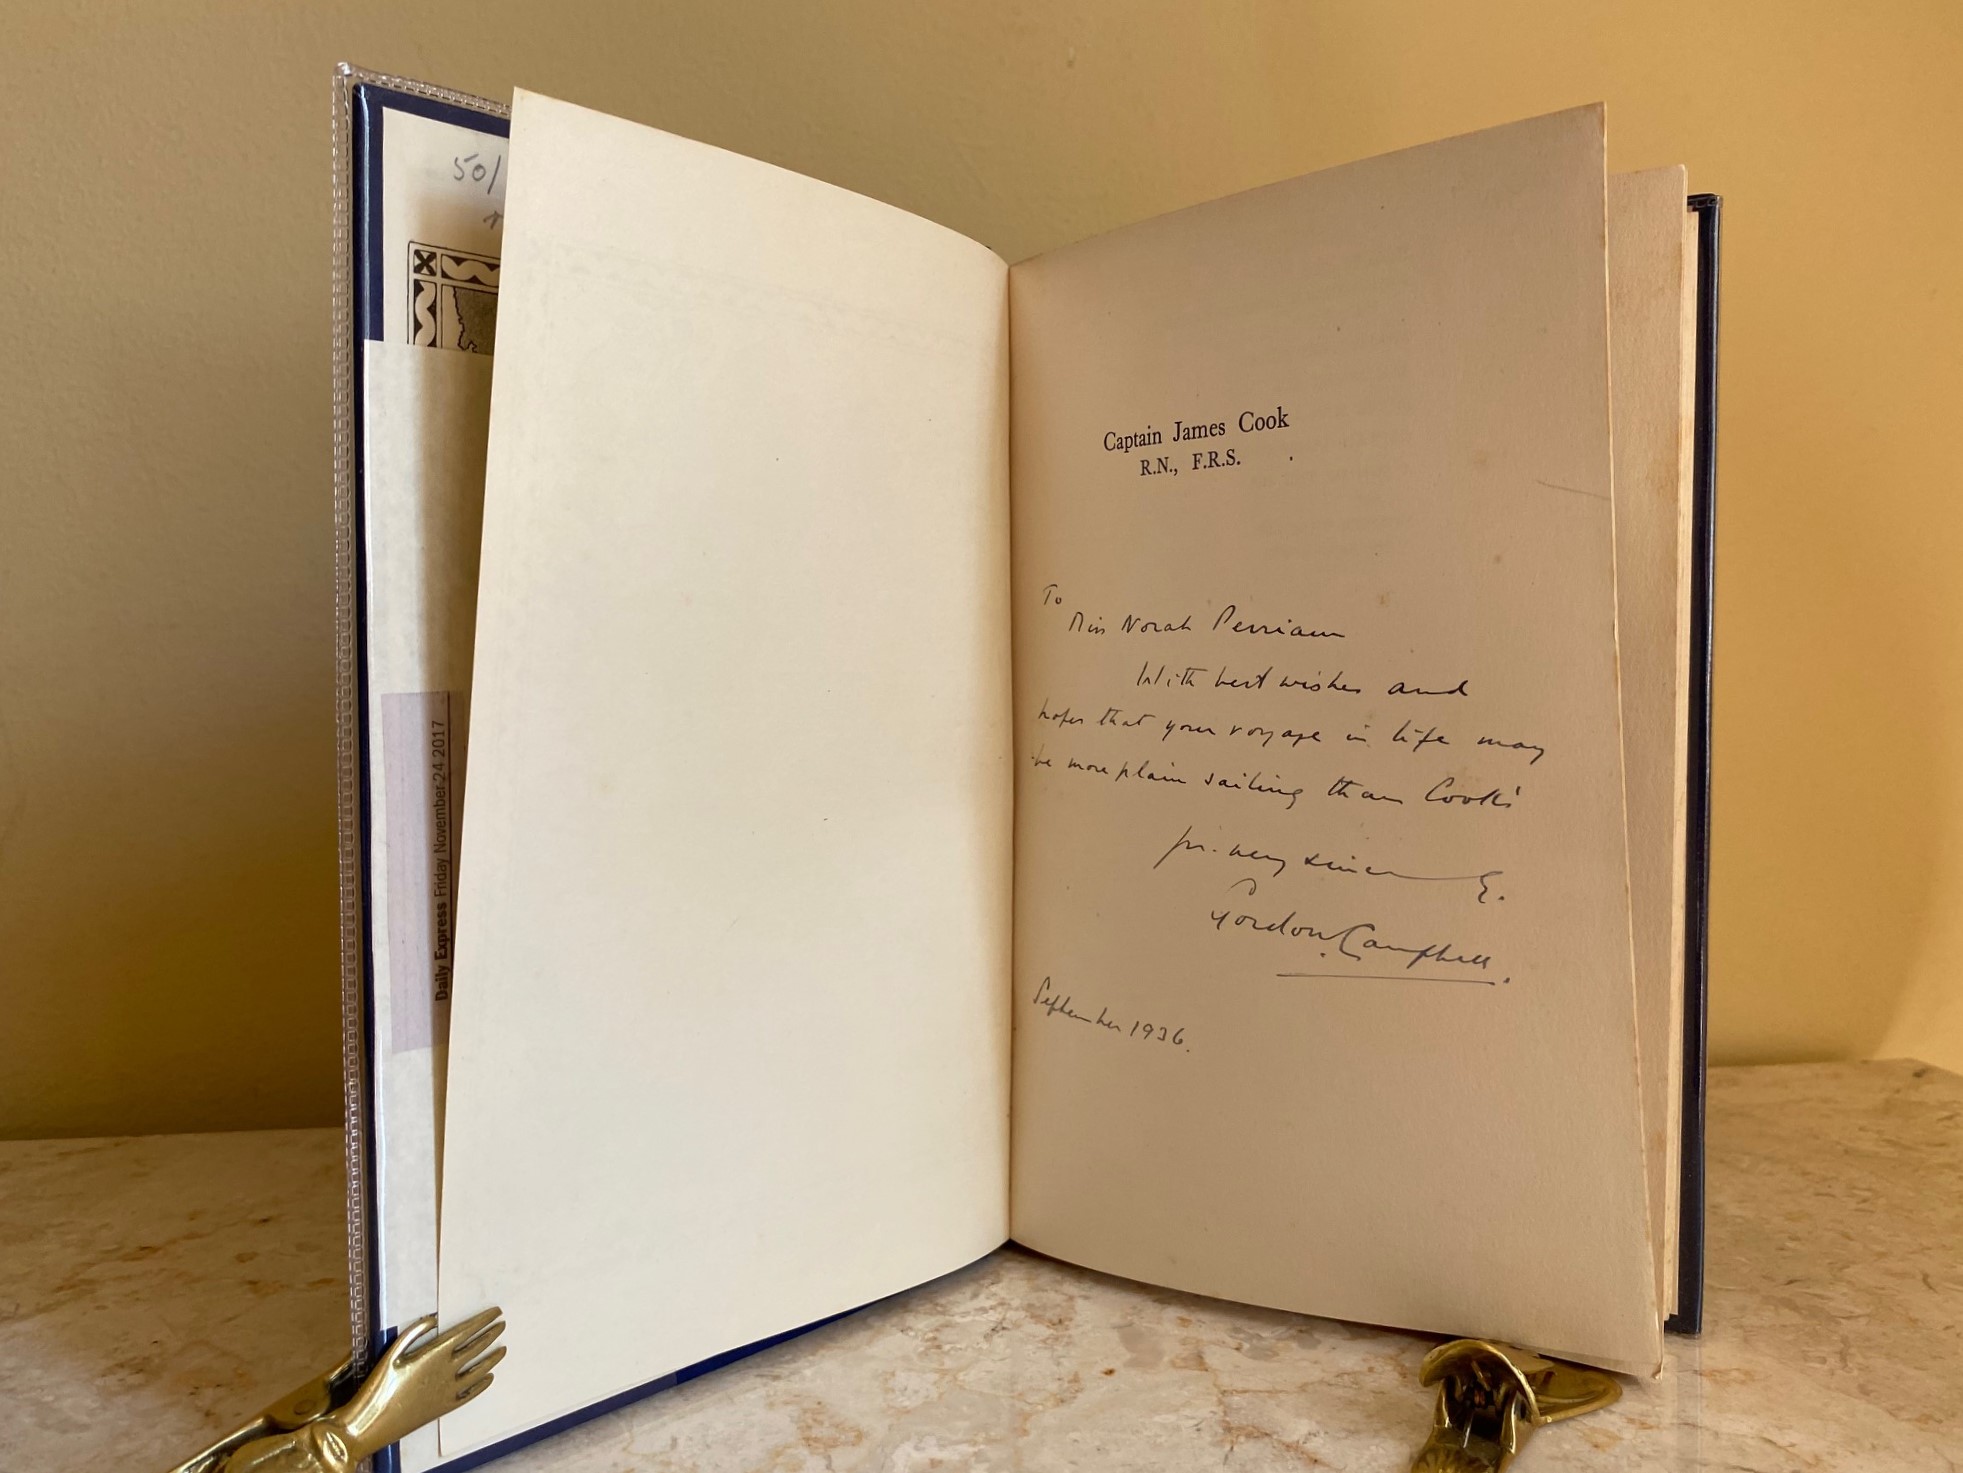 50/
Daily Express Friday November 24 2017
Captain James Cook
R.N., F.R.S.
To
Miss Norah Perriam
With best wishes and
hopes that your voyage in life may
be more plain sailing than Cook's
Yrs. very sincerely.
Gordon Campbell.
September 1936.